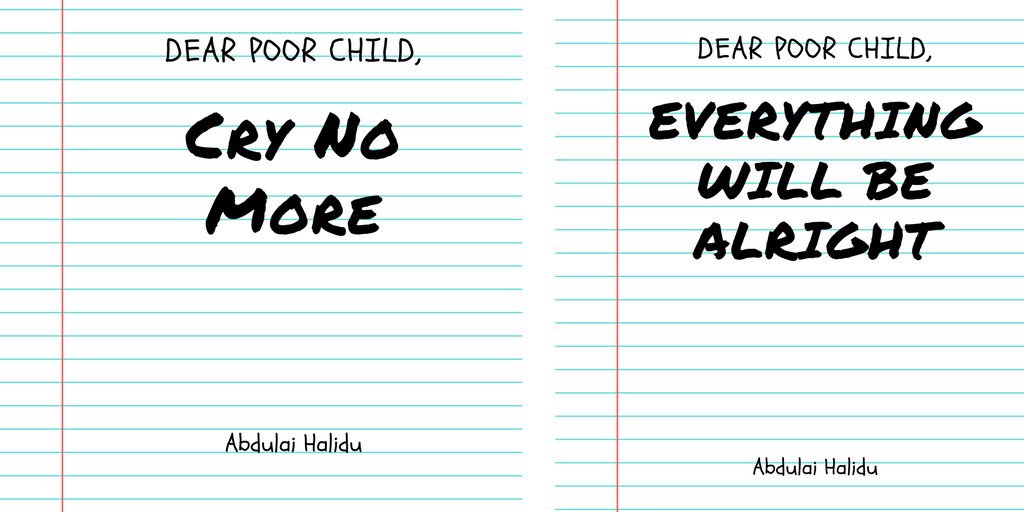 DEAR POOR CHILD,
CRY NO
MORE
Abdulai Halidu
DEAR POOR CHILD,
EVERYTHING
WILL BE
ALRIGHT
Abdulai Halidu